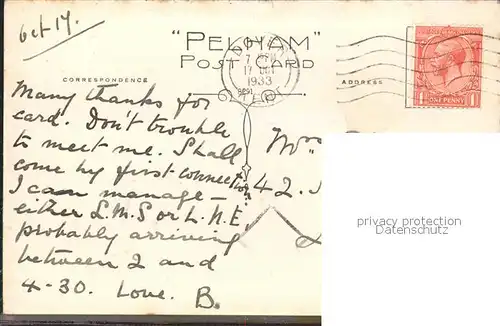 Oct 17.
"PELHAM"
POST CARD
CORRESPONDENCE
ADDRESS
17 OCT
1933
ONE PENNY
Many thanks for
card. Don't trouble
to meet me. Shall
come by first connection
I can manage –
either L.M.S or L.N.E.
probably arriving
between 2 and
4-30. Love. B.
42.
privacy protection
Datenschutz